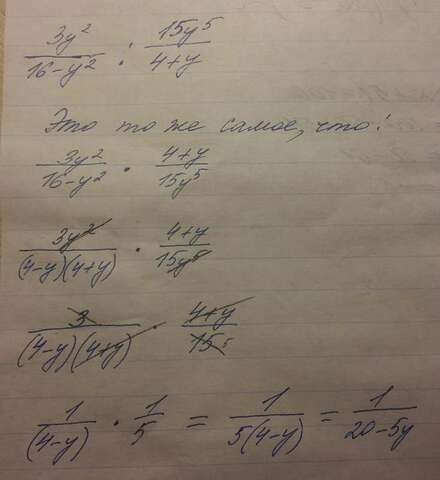 3y² / 16-y² : 15y⁵ / 4+y
Это то же самое, что:
3y² / 16-y² · 4+y / 15y⁵
3y² / (4-y)(4+y) · 4+y / 15y⁵
3 / (4-y)(4+y) · 4+y / 15 5
1 / (4-y) · 1 / 5 = 1 / 5(4-y) = 1 / 20-5y